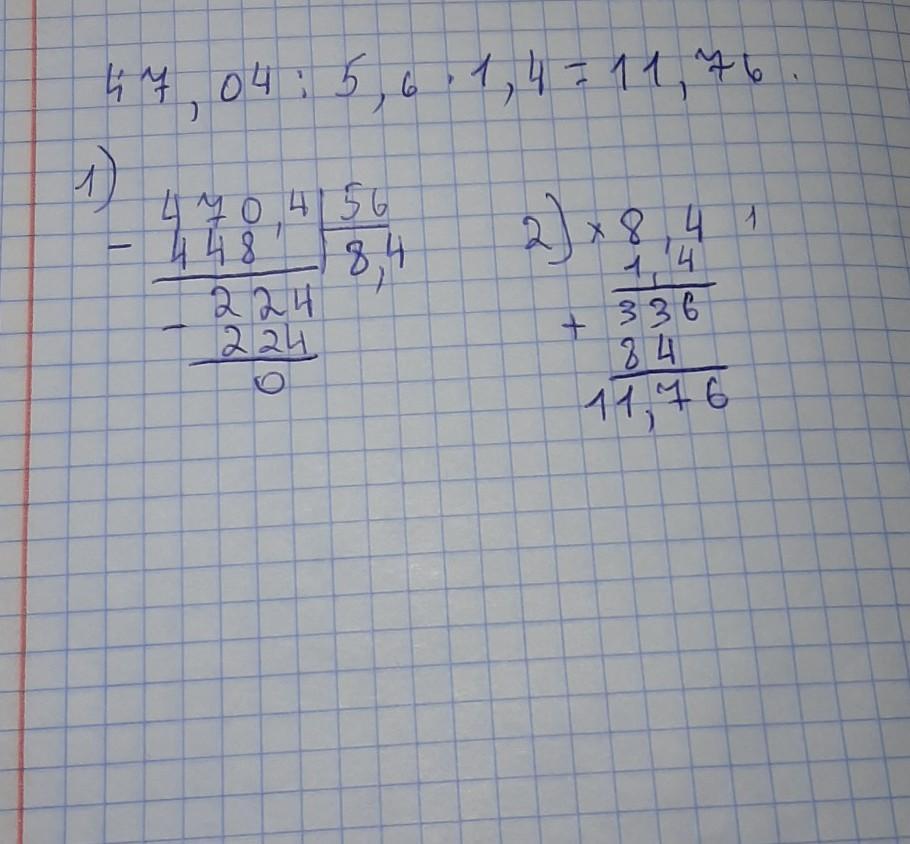 47,04 : 5,6 · 1,4 = 11,76.
1)
470,4 | 56
- 448 | 8,4
- 224
224
0
2) × 8,4 1
1,4
+ 336
84
11,76